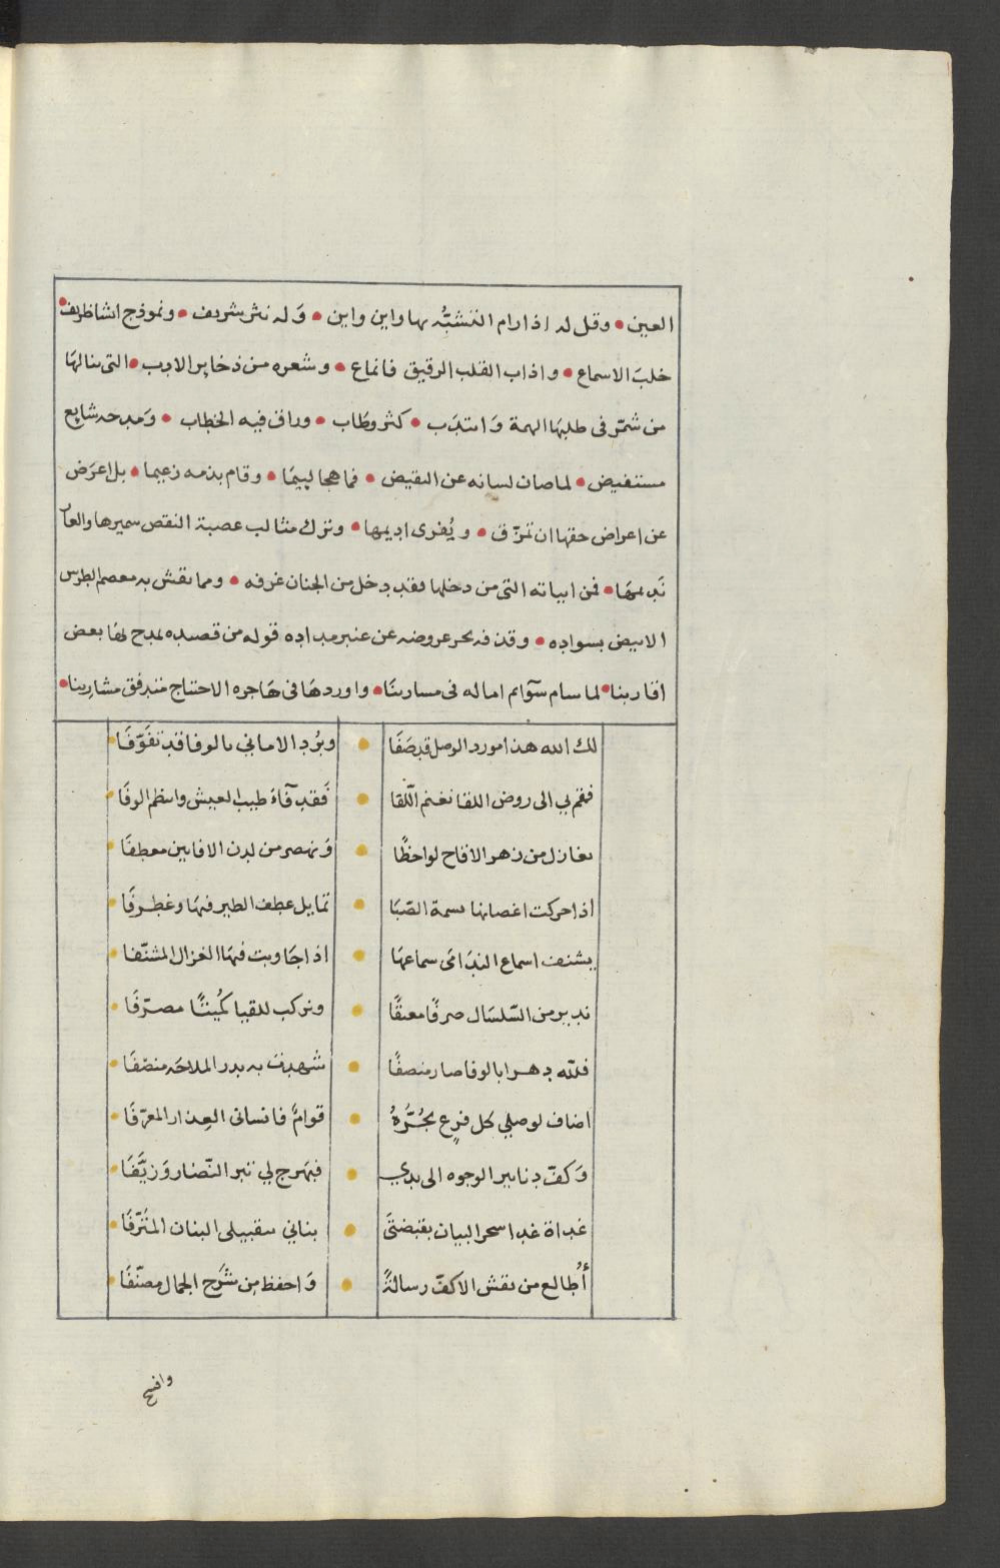 العين • وقل له اذا رام التشبُّه بها واين واين • وَله نثر شريف • ونموذج انشا ظريف •
خلبَ الاسماع • واذاب القلب الرقيق فانماع • وشعره من ذخاير الادب • التى ينالهَا
من شمّر فى طلبهَا الهمة وَانتدَب • كثر وطَاب • وراق فيه الخطاب • وَمدحه شايع
مستفيض • لما صان لسانه عن النقيض • فما هجا ليئمًا • وقام بذمه زعيما • بل اعرَض
عن اعراض حقها ان تمزّق • ويُفرى اديمها • وترك مثالب عصبة النقص سميرها والعار
نَديمهَا • فمن ابياته التى من دخلها فقد دخل من الجنان غرفه • ومما نقش به معصم الطرس
الابيض بسواده • وقذفه بحر عروضه عن عنبر مداده قوله من قصيده يمدح بهَا بعض
اقاربنا • لما سام سَوايم اماله فى مساربنَا • واوردهَا فى هَاجره الاحتياج متدفق مشاربنا •
لك الله هذا مورد الوصل قد صَفَا • وبُرد الامانى بالوفا قد تفَوّفَا •
فقم بي الى روض اللقا نغنم اللّقا • فَقد فآءَ طيب العيش وانظم الوفَا •
نغازل من زهر الاقاح لواحظًا • وَنهصر من لدن الافانين معطفَا •
اذا حركت اغصانها نسمة الصّبَا • تمايل عطف الطير فيهَا وغطرفَا •
يشنف اسماع الندَامَى سماعهَا • اذا جَاوبت فيهَا الغزال المشنّفا •
ندير من السّلسَال صرفًا معتقًا • ونركب للقيا كُميتًا مصرّفَا •
فلله دهرا بالوفا صار منصفًا • شهدت به بدر الملاحَه منصّفَا •
اضاف لوصلي كل فرعٍ يجُرُّهُ • قوامٌ فانسانى العِذار المعرّفَا •
وَكفّ دنانير الوجوه الى يدي • فبهرج لي تبر النّضار وَزيَّفَا •
غداة غدا سحر البيان بقبضتَى • بناني بتقبيلى البنان المُترّفَا •
أُطالع من نقش الاكفّ رسالةً • وَاحفظ من شَرح الجمال مصنّفَا •
وافسح